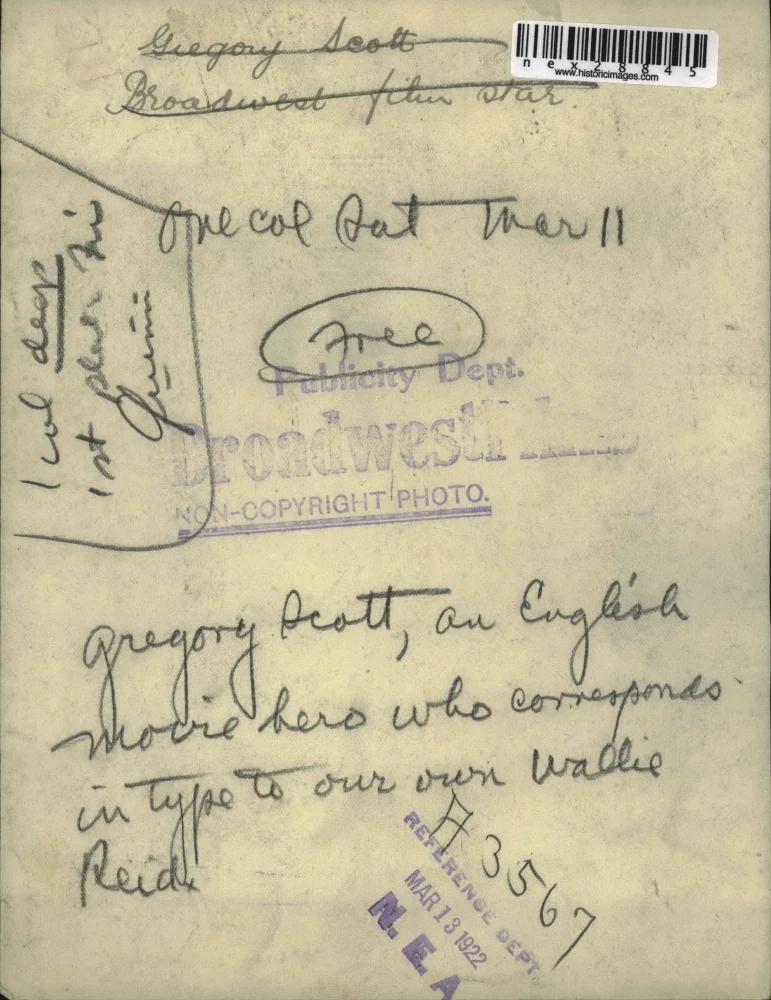 Gregory Scott
Broadwest film star.
nex28845
www.historicimages.com
One col Sat Mar 11
1 col deep
1st
Quinn
Free
Publicity Dept.
Broadwest Films
NON-COPYRIGHT PHOTO.
Gregory Scott, an English
movie hero who corresponds
in type to our own Wallie
Reid.
A3567
REFERENCE DEPT.
MAR 13 1922
N. E. A